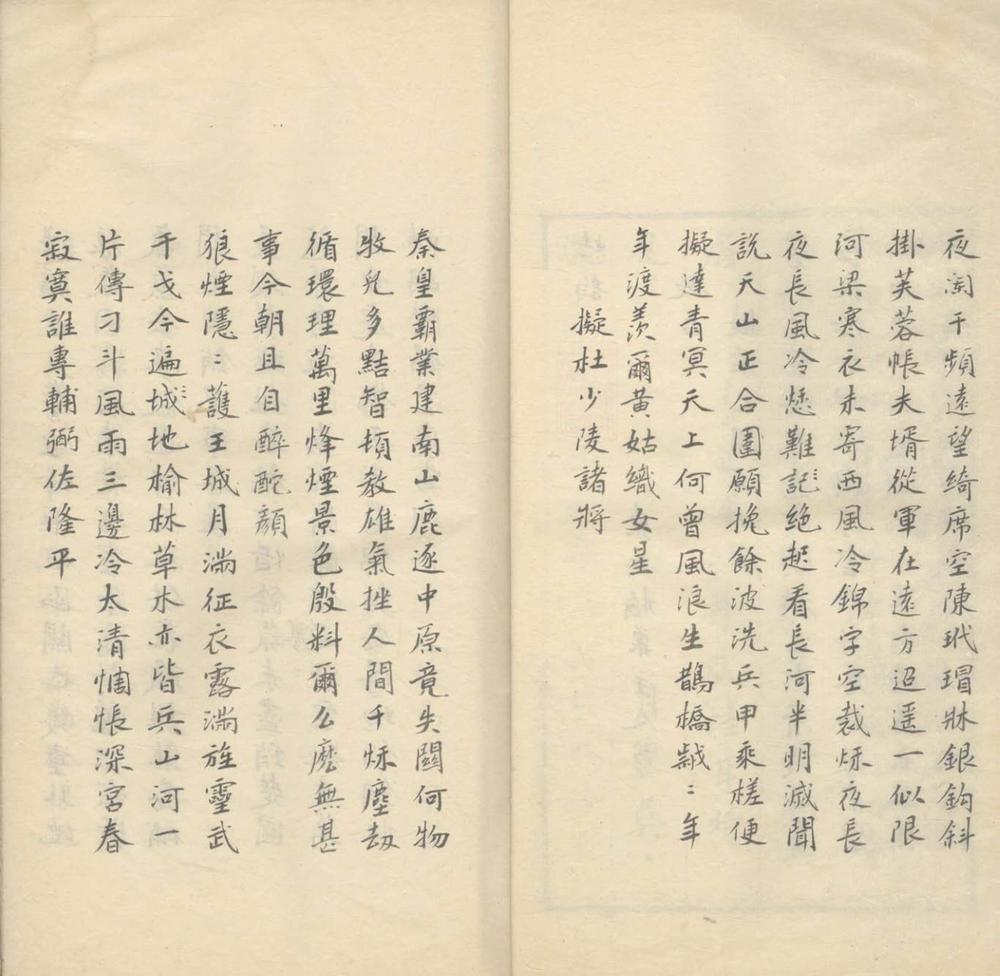 夜闌干頻遠望綺席空陳玳瑁牀銀鈎斜
掛芙蓉帳夫壻從軍在遠方迢遥一似限
河梁寒衣未寄西風冷錦字空裁秌夜長
夜長風冷愁難記絶起看長河半明滅聞
說天山正合圍願挽餘波洗兵甲乘槎便
擬達青冥天上何曾風浪生鵲橋 〻年
年渡羡爾黃姑織女星
擬杜少陵諸將
秦皇霸業建南山鹿逐中原竟失關何物
牧兒多點智頓教雄氣挫人間千秌塵刼
循環理萬里烽煙景色殷料爾么麼無甚
事今朝且自醉酡顏
狼煙隱〻護王城月滿征衣露滿旌靈武
干戈今遍城地榆林草木亦皆兵山河一
片傳刁斗風雨三邊冷太清惆悵深宮春
寂寞誰專輔弼佐隆平